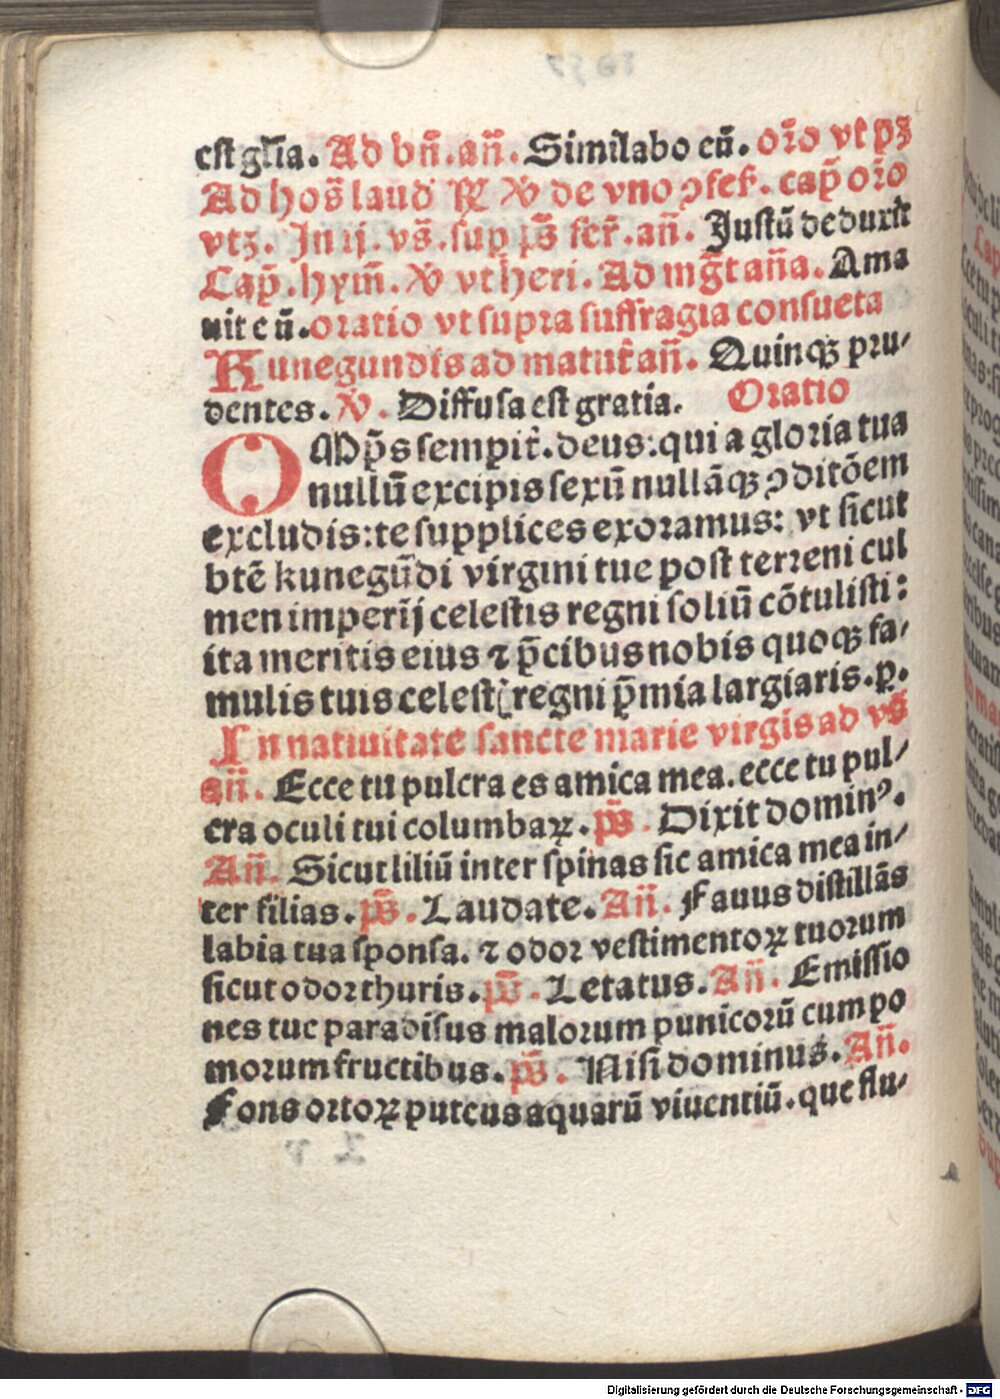 est gl̃ia. Ad bñ. añ. Similabo eũ. or̃o vt pꝫ
Ad hos̃ laud̾ ꝶ ℣ de vno ↄfes. cap̃ or̃o
vtꝫ. In ij. vs̃. sup ps̃ fer̃. añ. Justũ deduxit
Cap̃. hym̃. ℣ vt heri. Ad mg̃t aña. Ama
uit eũ. oratio vt supra suffragia consueta
Kunegundis ad matut̃ añ. Quinqꝫ pru-
dentes. ℣. Diffusa est gratia. Oratio
OMp̃s sempit̃. deus: qui a gloria tua
nullũ excipis sexũ nullãqꝫ ↄditõem
excludis: te supplices exoramus: vt sicut
btẽ kunegũdi virgini tue post terreni cul
men imperij celestis regni soliũ cõtulisti:
ita meritis eius ⁊ p̃cibus nobis quoqꝫ fa-
mulis tuis celestꝭ regni p̃mia largiaris. p.
In natiuitate sancte marie virgis ad vs̃
añ. Ecce tu pulcra es amica mea. ecce tu pul-
cra oculi tui columbaꝝ. ps̃. Dixit dominꝰ.
Añ. Sicut liliũ inter spinas sic amica mea in-
ter filias. ps̃. Laudate. Añ. Fauus distillãs
labia tua sponsa. ⁊ odor vestimentoꝝ tuorum
sicut odor thuris. ps̃. Letatus. Añ. Emissio
nes tue paradisus malorum punicorũ cum po
morum fructibus. ps̃. Nisi dominus. Añ.
Fons ortoꝝ puteus aquarũ viuentiũ. que flu-
Digitalisierung gefördert durch die Deutsche Forschungsgemeinschaft - DFG